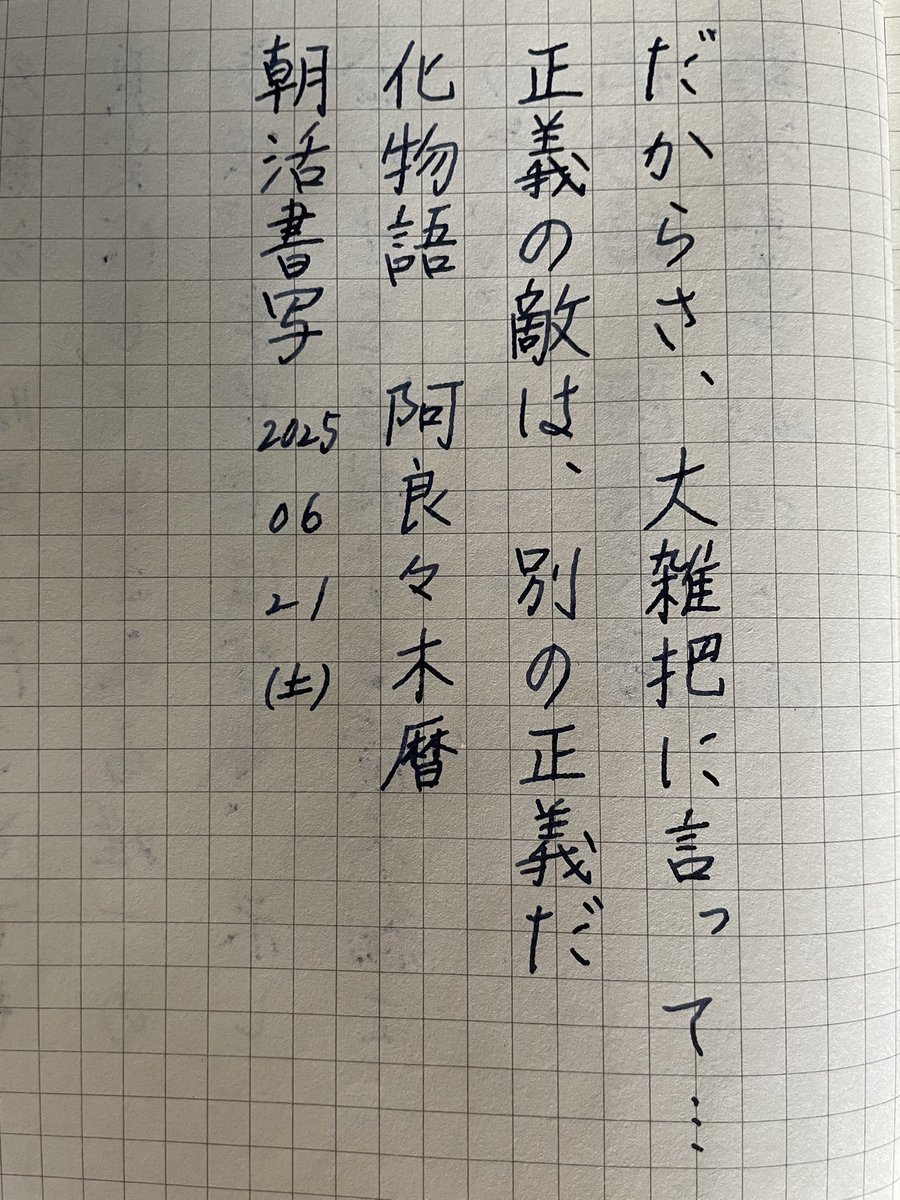 だからさ、大雑把に言って…
正義の敵は、別の正義だ
化物語 阿良々木暦
朝活書写 2025 06 21 (土)